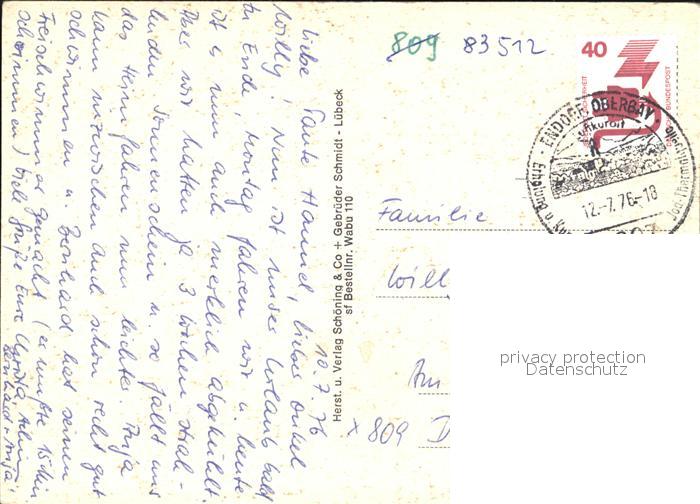 10.7.76
Liebe Tante Hannel, lieber Onkel
Willy! Nun ist unser Urlaub bald
zu Ende. Montag fahren wir u. heute
ist es nun auch merklich abgekühlt.
Aber wir hatten ja 3 Wochen strah-
lenden Sonnenschein u. so fällt uns
das Heimfahren nun leichter. Anja
kann inzwischen auch schon recht gut
schwimmen u. Bernhard hat seinen
Freischwimmer gemacht (er mußte 15 Min
schwimmen) Viele Grüße Eure
Bernhard + Anja!
Herst. u. Verlag Schöning & Co + Gebrüder Schmidt - Lübeck
sf Bestellnr. Wabu 110
809 83512
40
DEUTSCHE BUNDESPOST
ENDORF OBERBAY
12.-7.76-18
Familie
Willy
Am
x 809 D
privacy protection
Datenschutz